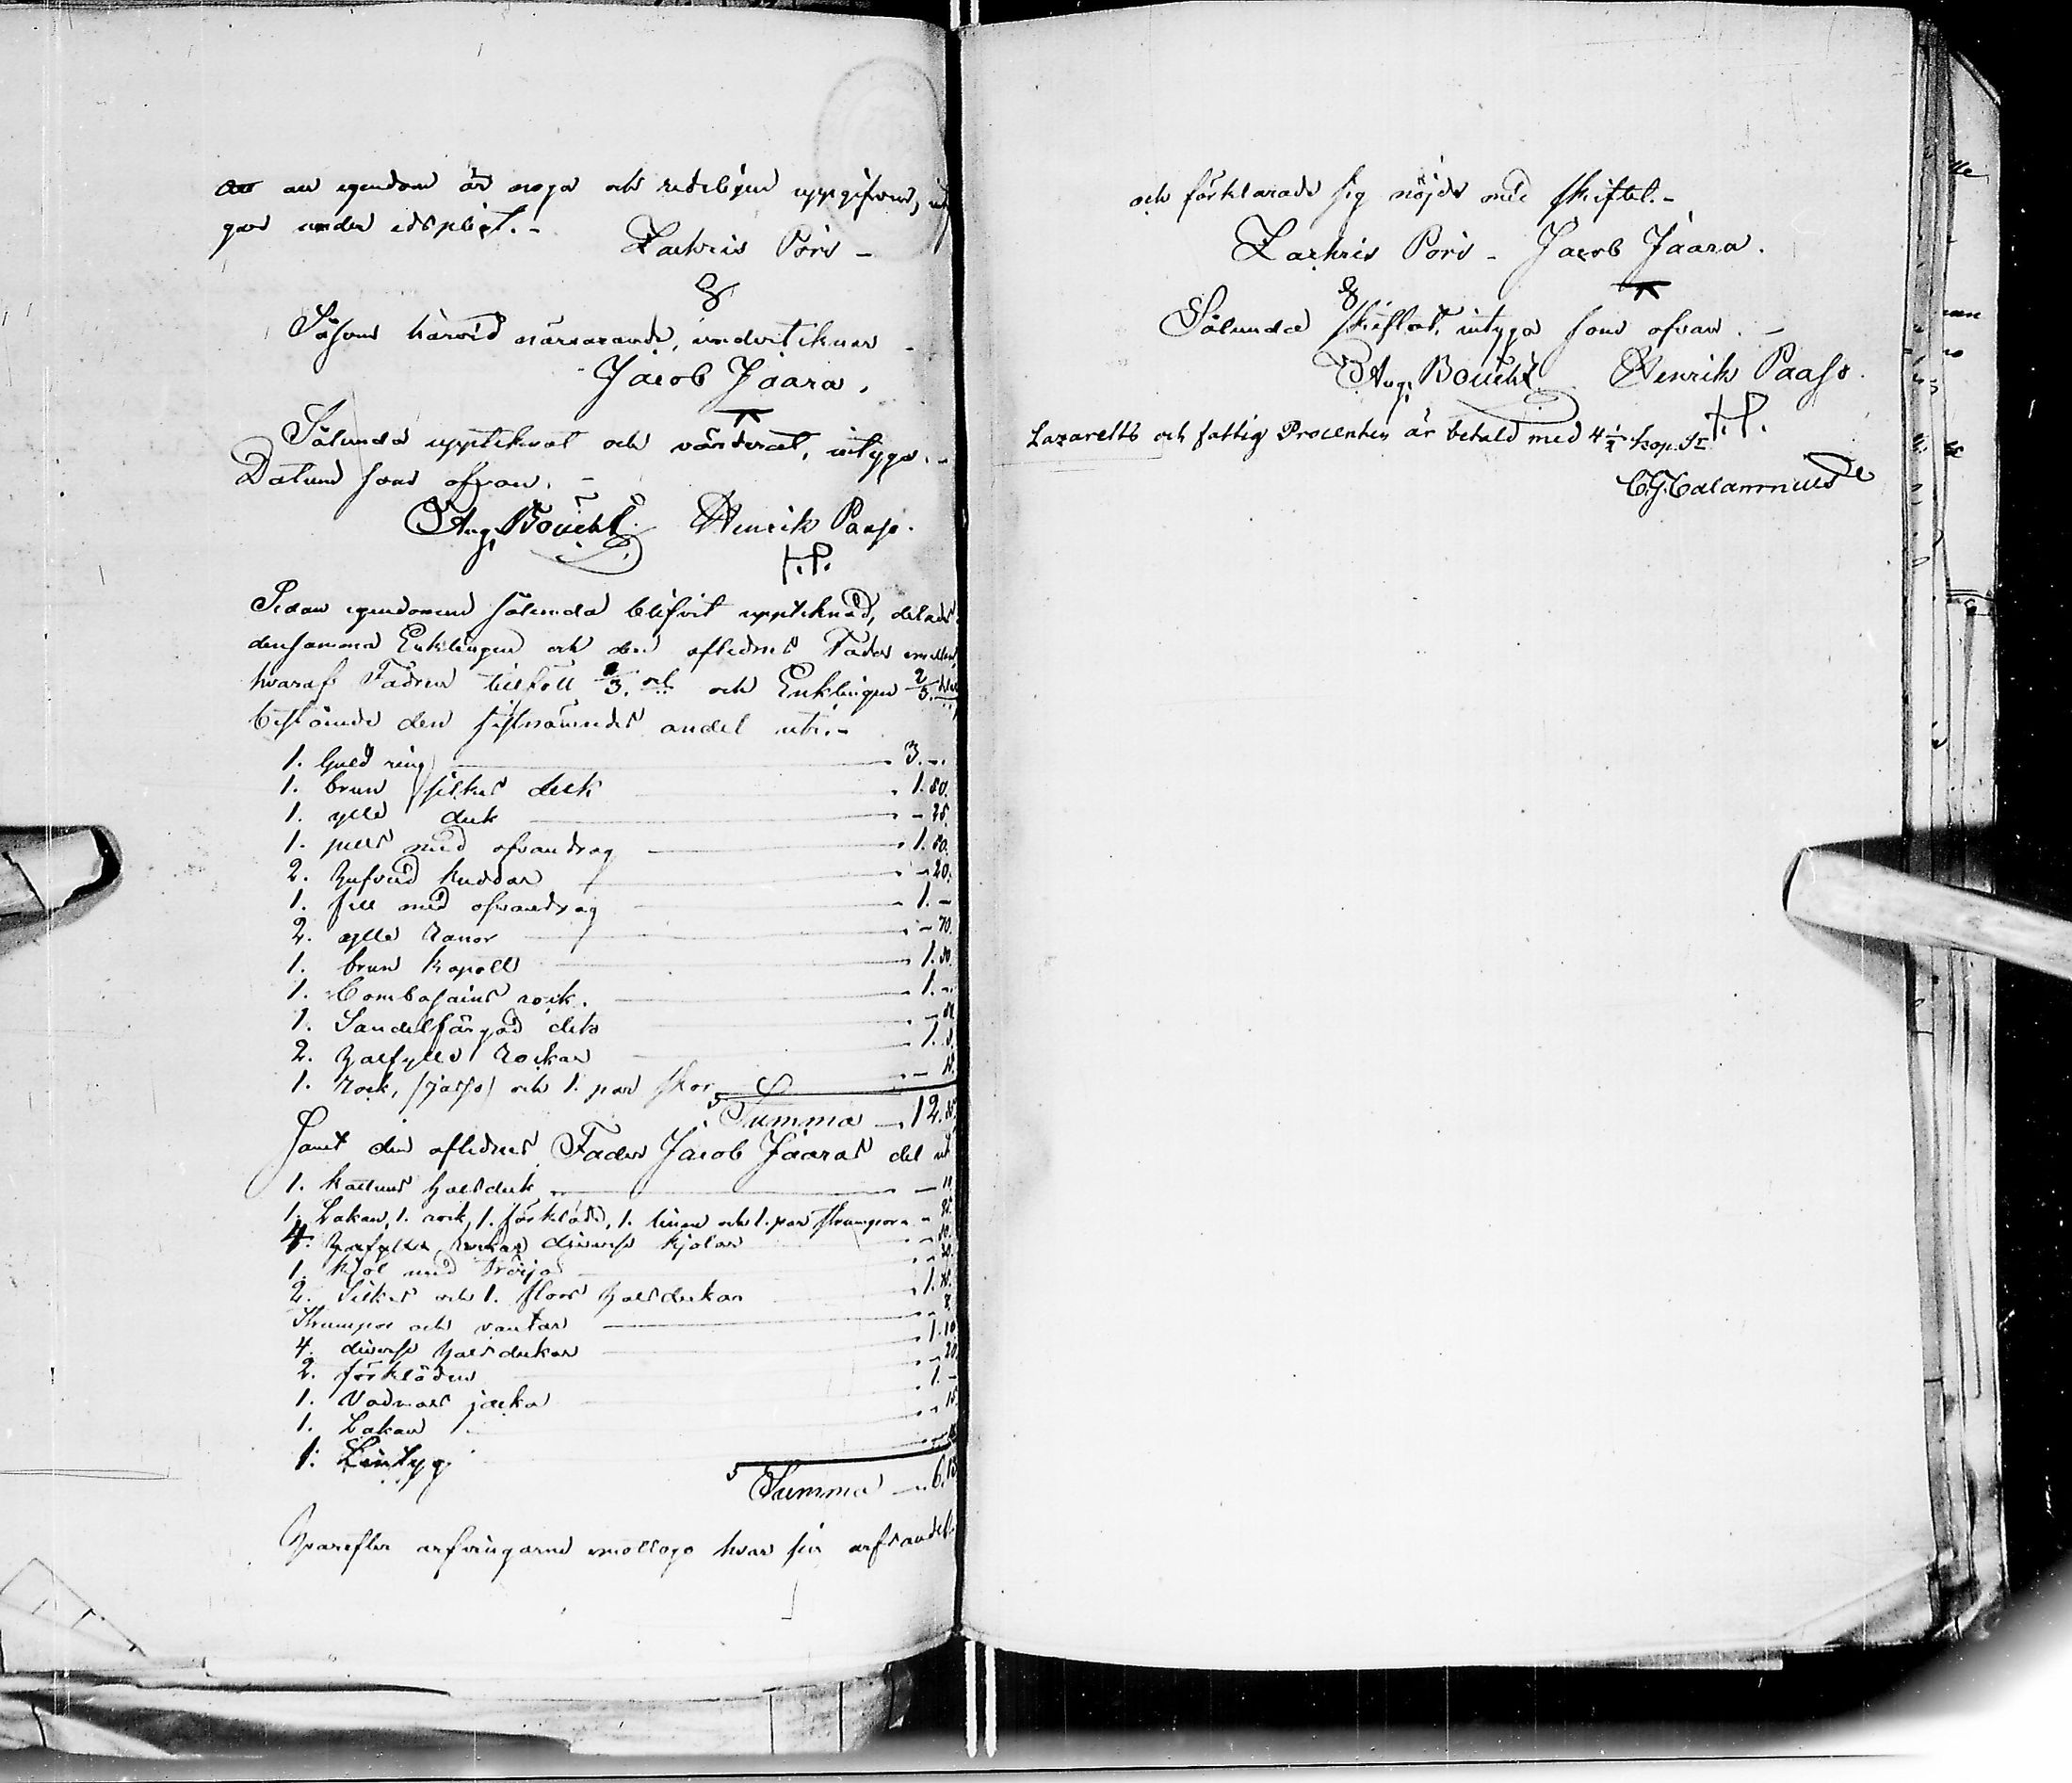 att egendom är noga och redeligen uppgifven, inty
gar under edsplikt. -
Zachris Pörs -
Såsom härvid närvarande, undertiknar -
Jacob Jaara.
Sålunda upptiknat och värderat, intyga. -
Datum som ofvan. -
Aug. Boucht. Henrik Paaso.
H.P.
Sedan egendomen sålunda blifvit uppteknad, delades
densamma Enklingen och den aflednes Fader emellan,
hvaraf Fadren tillföll 1/3. del och Enklingen 2/3. delar
bestående den sistnämndes andel uti. -
1. Guld ring 3. -.
1. brun silkes duk 1.50.
1. ylle duk - 25.
1. pells med ofvandrag 1.50.
2. hufvud kuddar - 20.
1. fell med ofvandrag 1. -
2. ylle ranor - 70.
1. brun kapott 1.50.
1. Combasains rock. 1. -
1. Sandelfärgad dito
2. halfylle rockar 1.
1. rock, och 1. par skor
Summa - 12.
Samt den aflednes Fader Jacob Jaaras del ut
1. kattuns halsduk
1. Lakan, 1. rock, 1. förkläde, 1. linne och 1. par strumpor
4. halfylle diverse kjolar
1. kjol med tröja
2. Silkes och 1. floos halsdukar 1.
Strumpor och vantar
4. diverse halsdukar 1.10
2. förkläden - 20.
1. Vadmals jacka 1. -
1. Lakan 15
1. Lintyg
Summa - 6.
Hvarefter arfvingarne emottogo hvar sin arfsandel
och förklarade sig nöjde med skiftet. -
Zachris Pörs - Jacob Jaara.
Sålunda skiftat, intyga som ofvan. -
Aug. Boucht Henrik Paaso.
H.P.
Lazaretts och fattig Procenten är betald med 4 1/2 kop. Sr
C.G. Calamnius